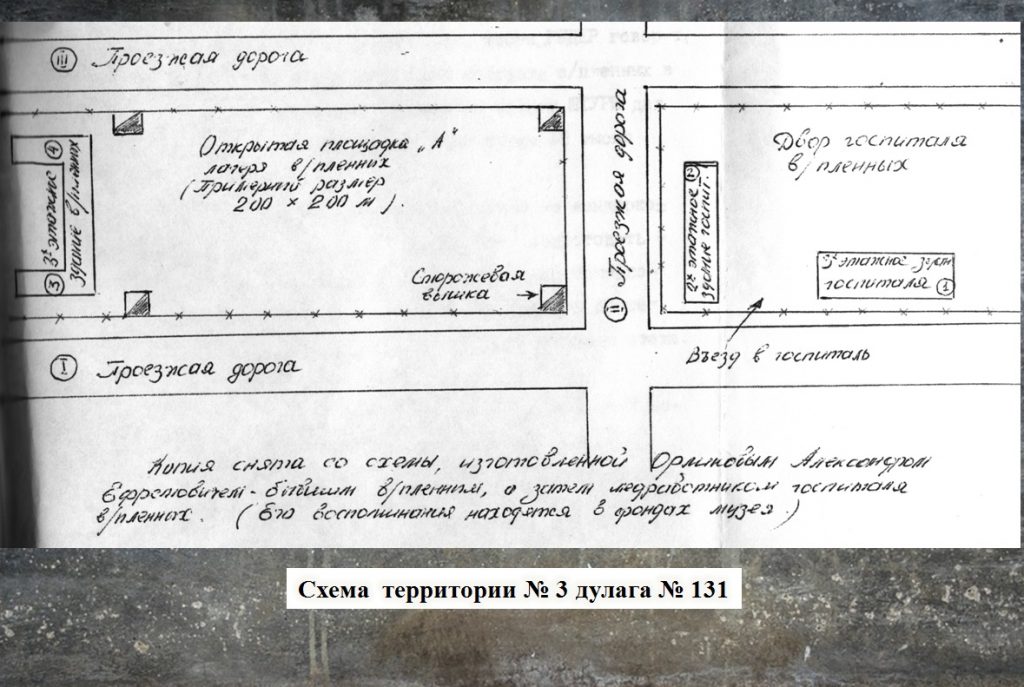 III Проезжая дорога
Открытая площадка „А"
лагеря в/пленных
(Примерный размер
200 × 200 м).
4
3х этажное
здание в/пленных
3
Сторожевая
вышка
II Проезжая дорога
Двор госпиталя
в/пленных
2х этажное 2
здание госпит.
3х этажное здан
госпиталя 1
Въезд в госпиталь
I Проезжая дорога
Копия снята со схемы, изготовленной Александром
Ефремовичем - бывшим в/пленным, а затем медработником госпиталя
в/пленных. (Его воспоминания находятся в фондах музея.)
Схема территории № 3 дулага № 131